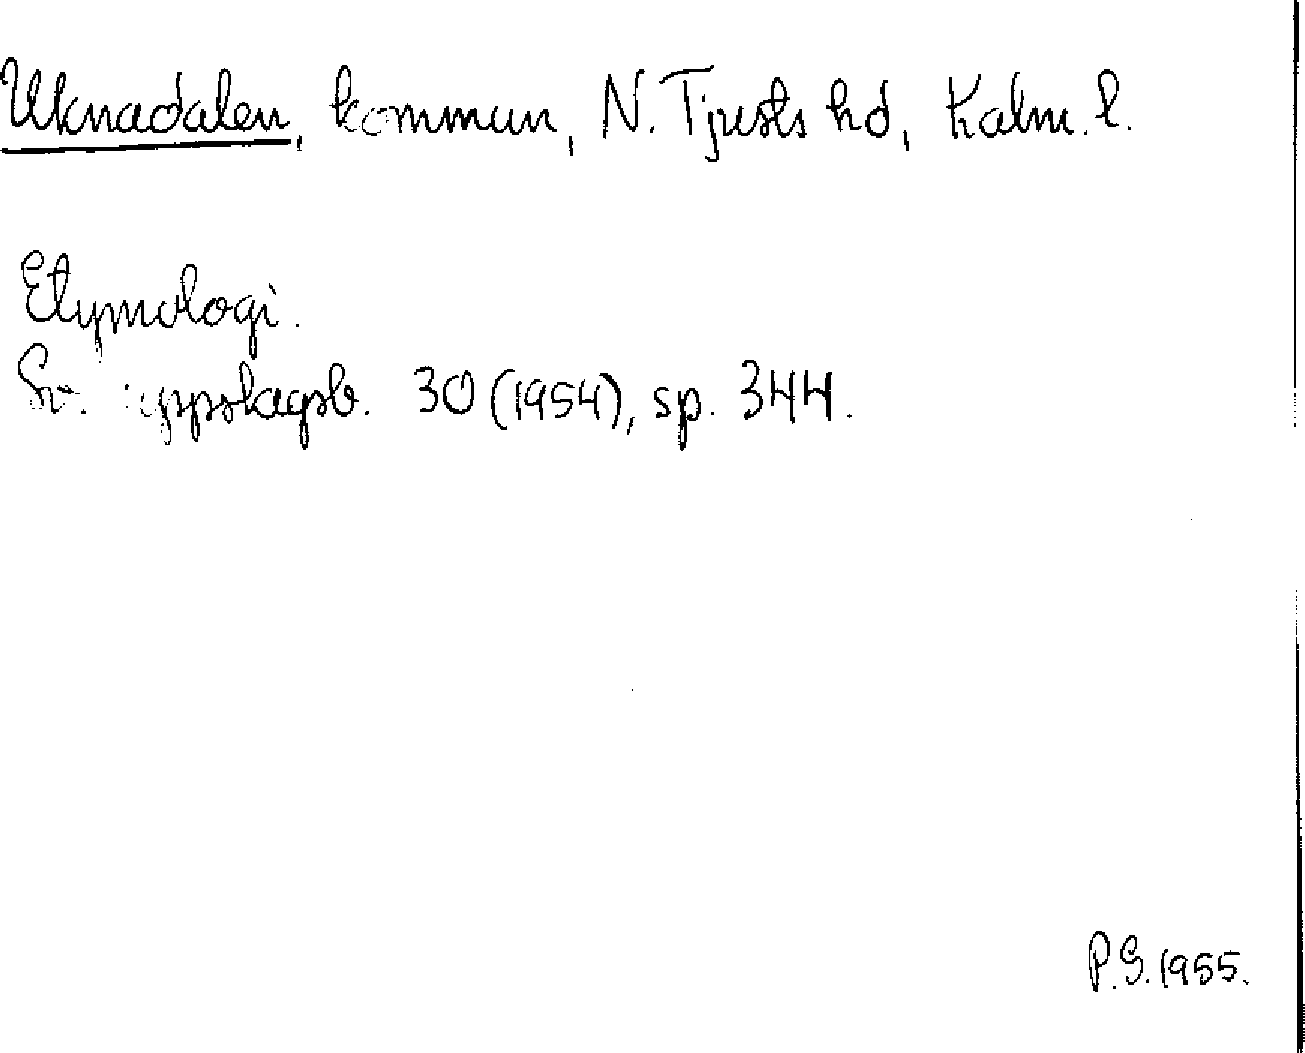 Uknadalen, kommun, N. Tjusts hd, Kalm. l.
Etymologi.
Sv. uppslagsb. 30 (1954), sp. 344.
P.S. 1955.